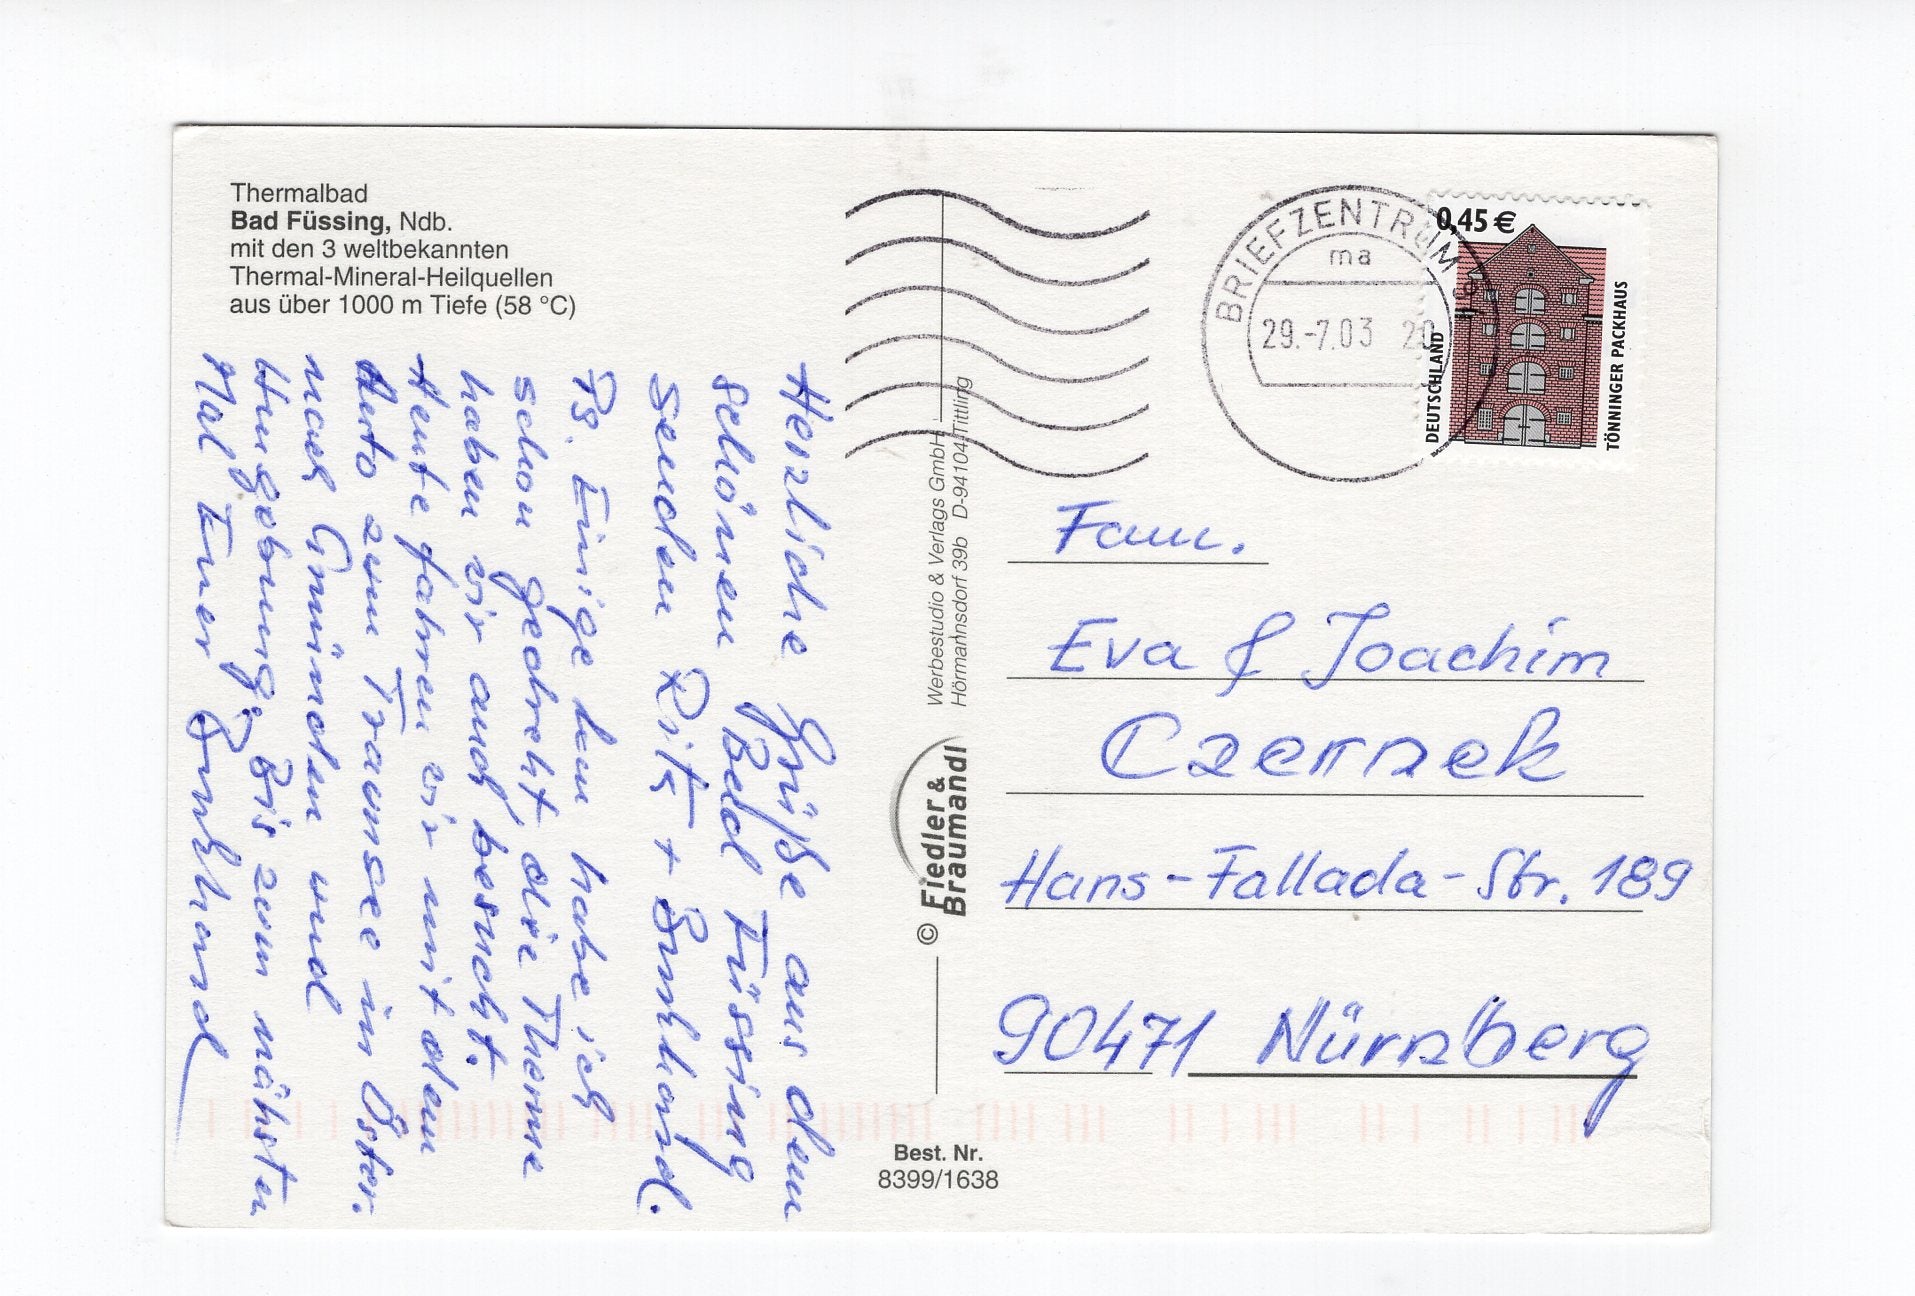 Thermalbad
Bad Füssing, Ndb.
mit den 3 weltbekannten
Thermal-Mineral-Heilquellen
aus über 1000 m Tiefe (58 °C)
Herzliche Grüße aus dem
schönen Bad Füssing
senden Rita + Burkhard.
Ps. Einige km habe ich
schon gedreht, die Therme
haben wir auch besucht.
Heute fahren wir mit dem
Auto zum Traunsee in Öster.
nach Gmünden und
Umgebung. Bis zum nähsten
Mal Euer Burkhard
Werbestudio & Verlags GmbH
Hörmannsdorf 39b D-94104 Tittling
© Fiedler &
Braumandl
Best. Nr.
8399/1638
BRIEFZENTRUM
ma
29.-7.03 20
0,45 €
DEUTSCHLAND
TÖNNINGER PACKHAUS
Fam.
Eva & Joachim
Czernek
Hans-Fallada-Str. 189
90471 Nürnberg